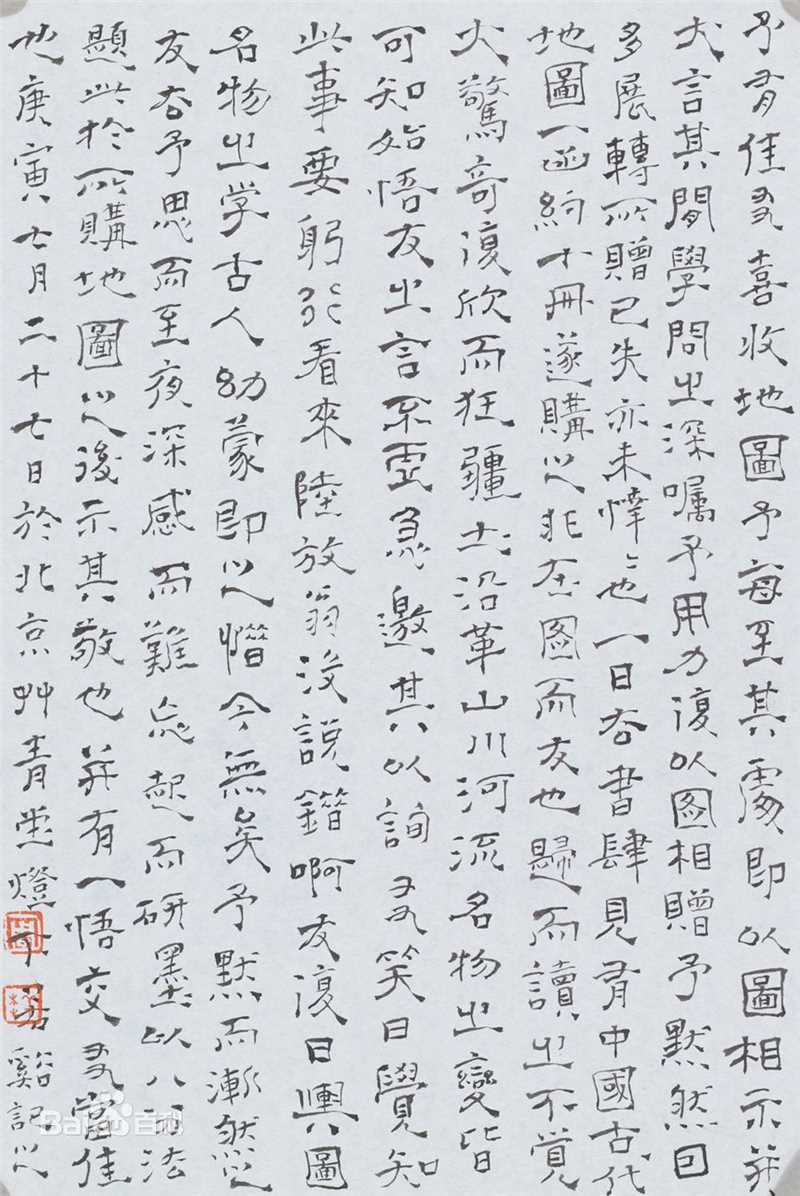 予有佳友喜收地圖予每至其處即以圖相示并
大言其間學問之深囑予用力復以图相贈予默然回
多展轉所贈已失亦未惮惮也一日在書肆見有中國古代
地圖一函約十冊遂購以非在图而友也歸而讀之不觉
大驚奇復欣而狂疆土沿革山川河流名物之變皆
可知始悟友之言不虚急邀其以詢友笑曰覺知
此事要躬行看來陸放翁没說錯啊友復曰輿圖
名物之学古人幼蒙即以憯今無矣予默而漸然以
友在予思而至夜深感而難忘起而研墨以八法
題此於所購地圖以後示其敬也并有一悟交友當佳
也庚寅七月二十七日於北京艸青堂燈下方谿記以
Baidu百科